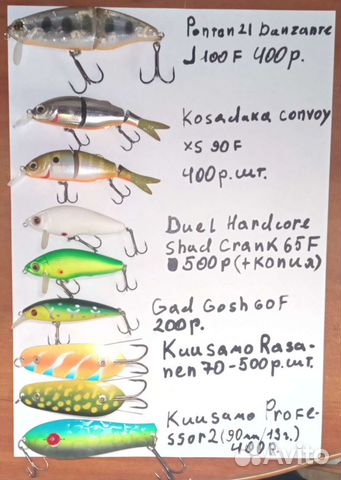 Pontoon 21 Danzante
J 100F 400р.
Kosadaka convoy
XS 90F
400р.шт.
Duel Hardcore
Shad Crank 65F
500р(+копия)
Gad Gosh 60F
200р.
Kuusamo Rasa-
nen 70-500р.шт.
Kuusamo Profe-
ssor2(90мм/19г.)
400р.
Avito